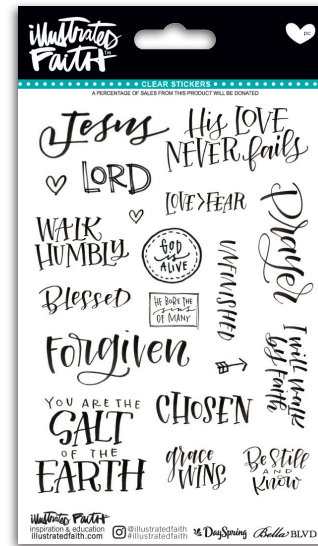 illustrated
FAITH
pc
CLEAR STICKERS
A PERCENTAGE OF SALES FROM THIS PRODUCT WILL BE DONATED
Jesus
His LOVE
NEVER fails
LORD
LOVE>FEAR
WALK
HUMBLY
GOD
is
ALIVE
Prayer
UNFINISHED
Blessed
HE BORE THE
sins
OF MANY
Forgiven
I will walk
by faith
YOU ARE THE
SALT
OF THE
EARTH
CHOSEN
grace
WINS
Be Still
AND
Know
illustrated FAITH
inspiration & education
illustratedfaith.com
@illustratedfaith
#illustratedfaith
DaySpring
Bella BLVD